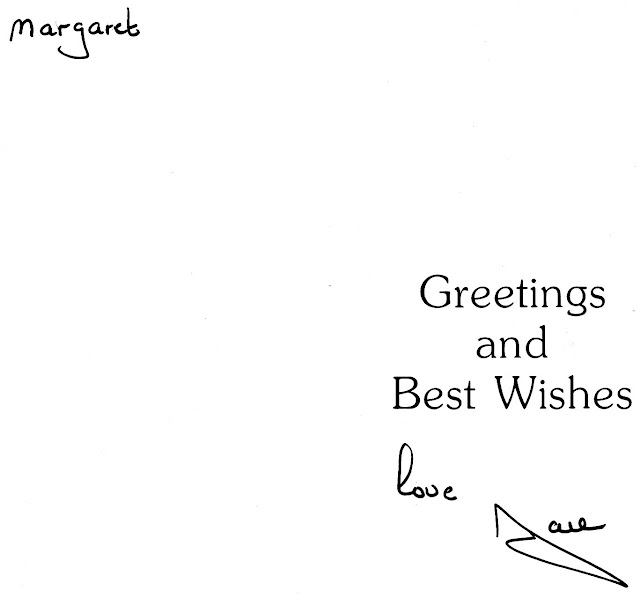 Margaret
Greetings
and
Best Wishes
love